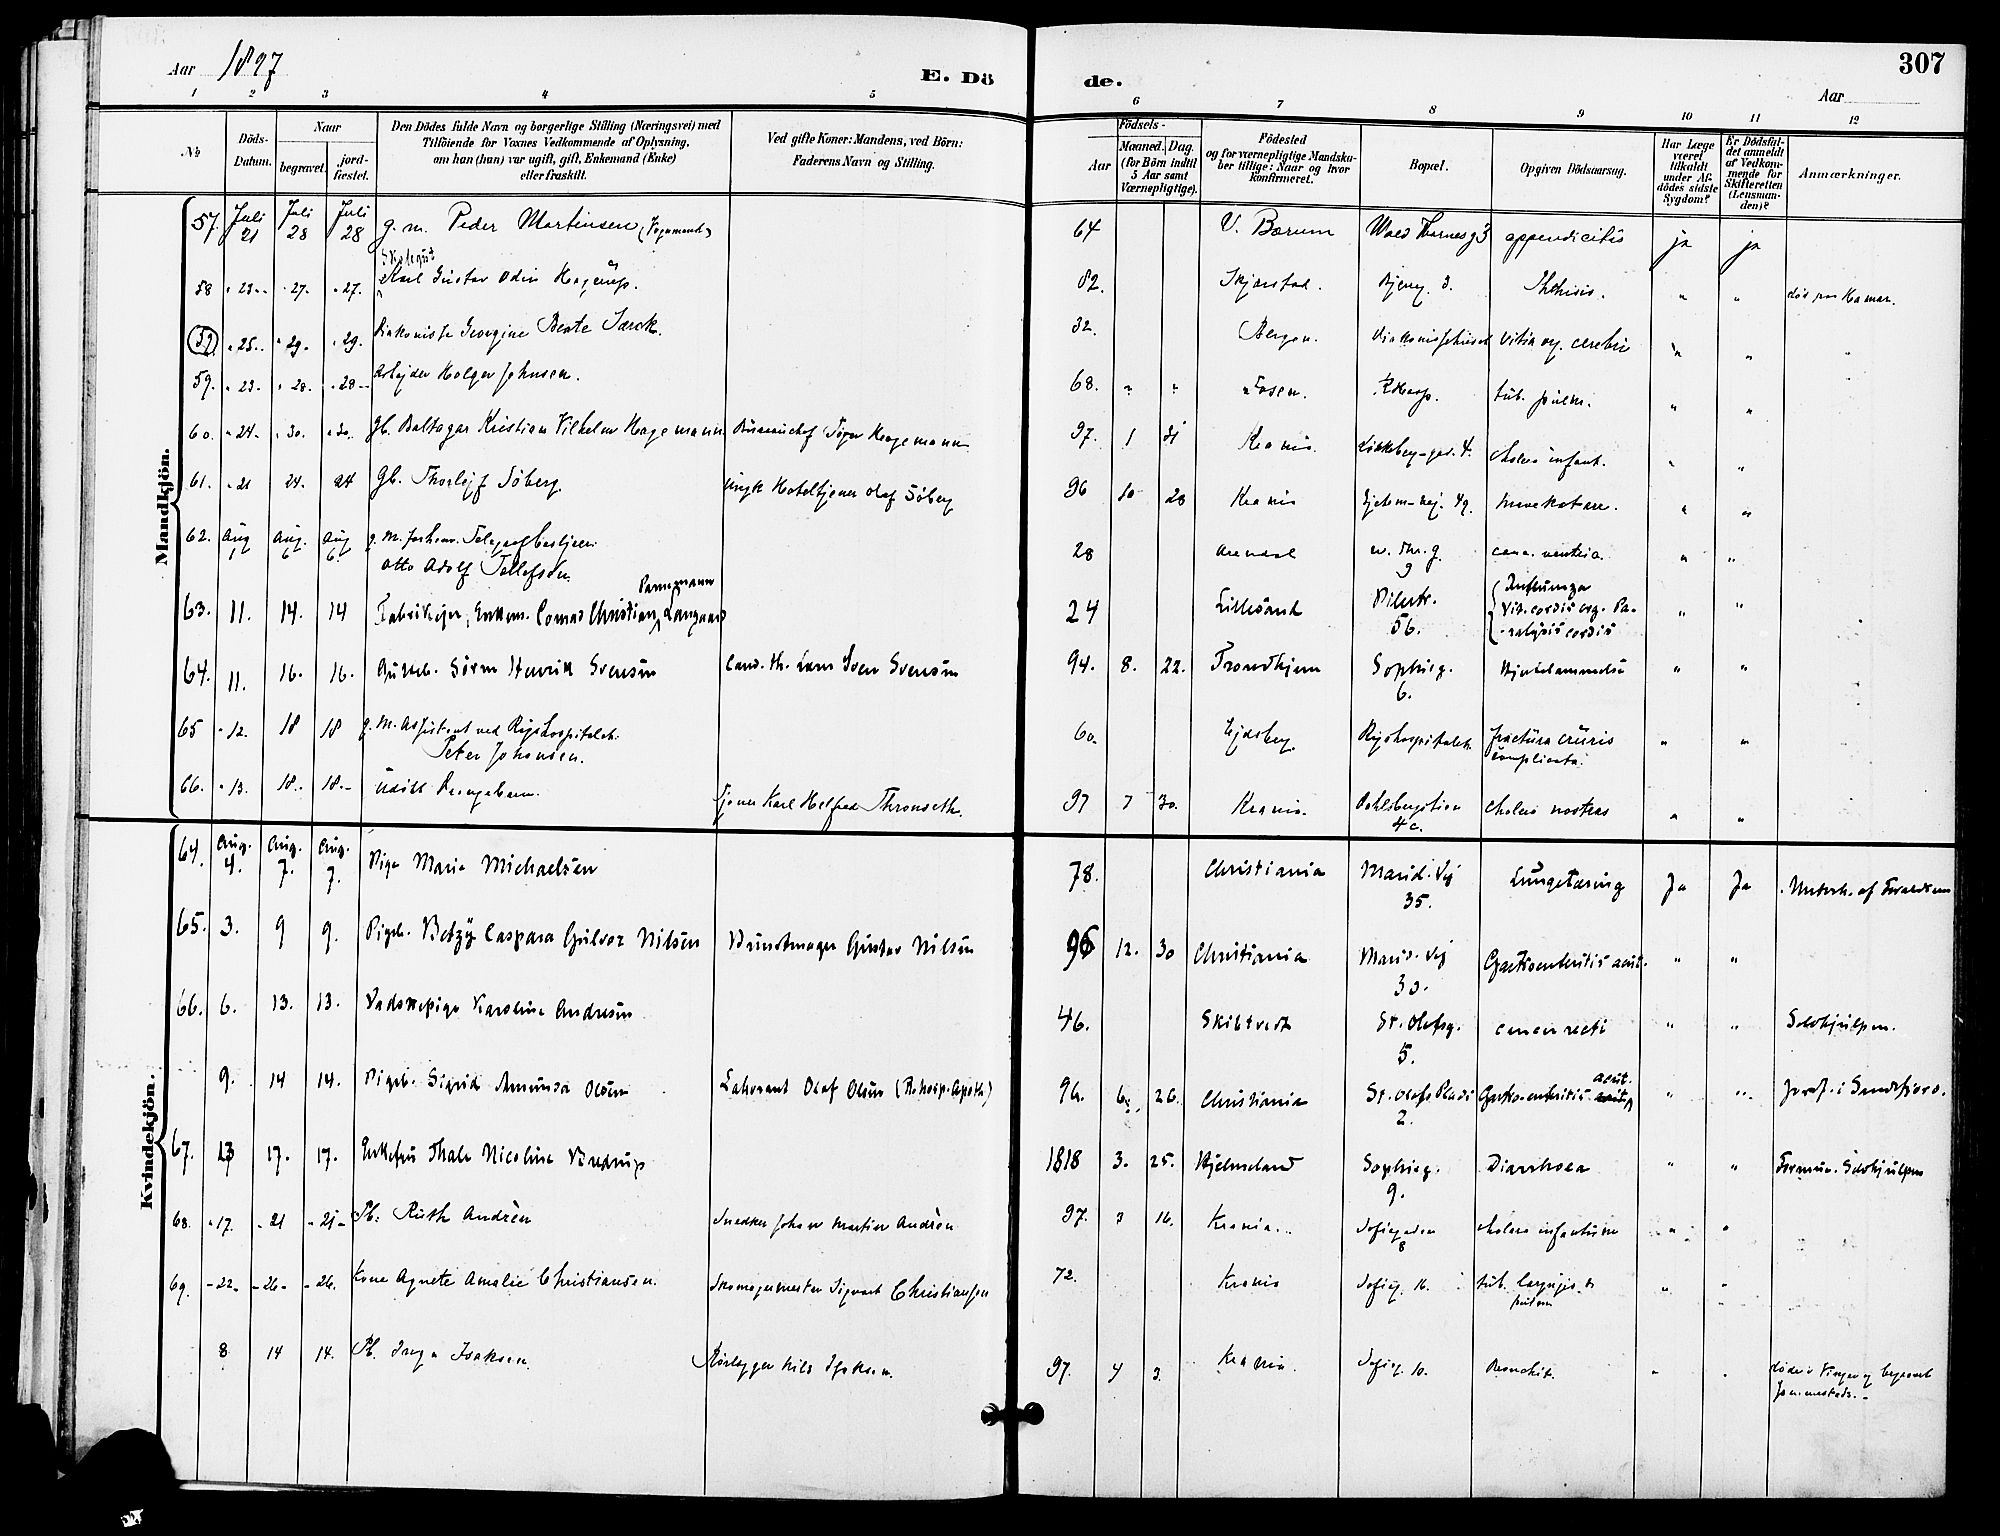 Aar 1897
E. Dö
de.
307
Aar
1 2 3 4 5 6 7 8 9 10 11 12
No
Döds-Datum.
Naar
begravet.
jord-fæstet.
Den Dödes fulde Navn og borgerlige Stilling (Næringsvei) med
Tilföiende for Voxnes Vedkommende af Oplysning,
om han (hun) var ugift, gift, Enkemand (Enke)
eller fraskilt.
Ved gifte Koner: Mandens, ved Börn:
Faderens Navn og Stilling.
Födsels-
Aar
Maaned. Dag.
(for Börn indtil
5 Aar samt
Værnepligtige).
Födested
og for værnepligtige Mandska-
ber tillige: Naar og hvor
konfirmeret.
Bopæl.
Opgiven Dödsaarsag.
Har Læge
været
tilkaldt
under Af-
dödes sidste
Sygdom?
Er Dödsfal-
det anmeldt
af Vedkom-
mende for
Skifteretten
(Lensman-
den)?
Anmærkninger.
Mandkjön.
57. Juli 21 Juli 28 Juli 28 g. m. Peder Martinsen 64 V. Bærum appendicitis ja ja
58 " 23 " 27. " 27. Karl Gustav Odin Hagerup. 82. Skjerstad. Bjerg. 3. Phthisis. " " død paa Hamar.
(59) " 25 " 29 " 29. Diakonisse Georgine Beate Sarck. 32. Bergen. Diakonissehuset Vitia org. cerebri " " "
59. " 23. " 28. " 28 Arbejder Holger Johnsen. 68. " " Fosen. tub. pulm. " "
60. " 24 " 30. " 30. Gb. Baltazar Kristian Vilhelm Hagemann Bureauchef Hagemann 97. 1 31 Krania. cholera infant. " "
61. " 21 24. 24 Gb. Thorlejf Søberg. ungk Hoteltjener Olaf Søberg 96 10 28 Krania " "
62. Aug 1 Aug. 6 Aug 6. g. m. Telegrafbestjener
Otto Adolf Tellefsen 28 Arendal canc. ventric. " "
63. 11. 14. 14 Fabrikejer, Enkem. Conrad Christian Langaard 24 Lillesand Pilestr.
56. Influenza
Vit. cordis org. Pa-
ralysis cordis " "
64. 11. 16. 16. Gutteb. Sørm Henrik Svensen Cand. th. Lars Sven Svensen 94. 8. 22. Trondhjem Sophieg.
6. Hjertelammelse " "
65 " 12. 18 18 g. M. Assistent ved Rigshospitalet
Peter Johansen. 60. Ejdsberg Rigshospitalet fractura cruris
complicata. " "
66. " 13. 18. 18. Udøbt Drengebarn. Tjener Karl Helfred Thronseth. 97 7 30. Krania. Dahlsbergstien
4c. cholera nostras " "
Kvindekjön.
64. Aug. 4. Aug. 7. Aug. 7. Pige Marie Michaelsen 78. Christiania Marid. Vej
35. Lungetæring Ja Ja
65. 3. 9 9. Pigeb. Betzy Caspara Gulvor Nilsen Bundtmager Gustav Nilsen 96 12. 30 Christiania Marid. Vej
30. Gastroenteritis acut. " "
66. 6. 13. 13. Vadskepige Karoline Andresen 46. Skibtvedt St. Olafsg.
5. cancer recti " " Selvhjulpen.
9. 14 14. Pigeb. Sigrid Amunda Olsen Laborant Olaf Olsen (Rshosp. Apoth) 96. 6. 26. Christiania St. Olafs Plads
2. Gastro-enteritis acut. " " Jordf. i Sandefjord.
67. 13 17. 17. Enkefru Thale Nicoline Bredrup 1818 3. 25. Hjelmeland Sophieg.
9. Diarrhoea " " Formue. Selvhjulpen
68. " 17. " 21 " 21 Pb. Ruth Andrèn Snedker Johan Martin Andrèn 97. 3 16. Krania. Sofiegaden
8 cholera infantum " "
69. 22 26 26. Kone Agnete Amalie Christiansen. Skomagermester Sigvart Christiansen 72. Krania Sofieg. 16. tub. laryngis &
pulm " "
8 14 14. Pb. Inga Isaksen. Rørlægger Nils Isaksen. 97. 4 3. Krania. Sofieg. 10. Bronchit. " "